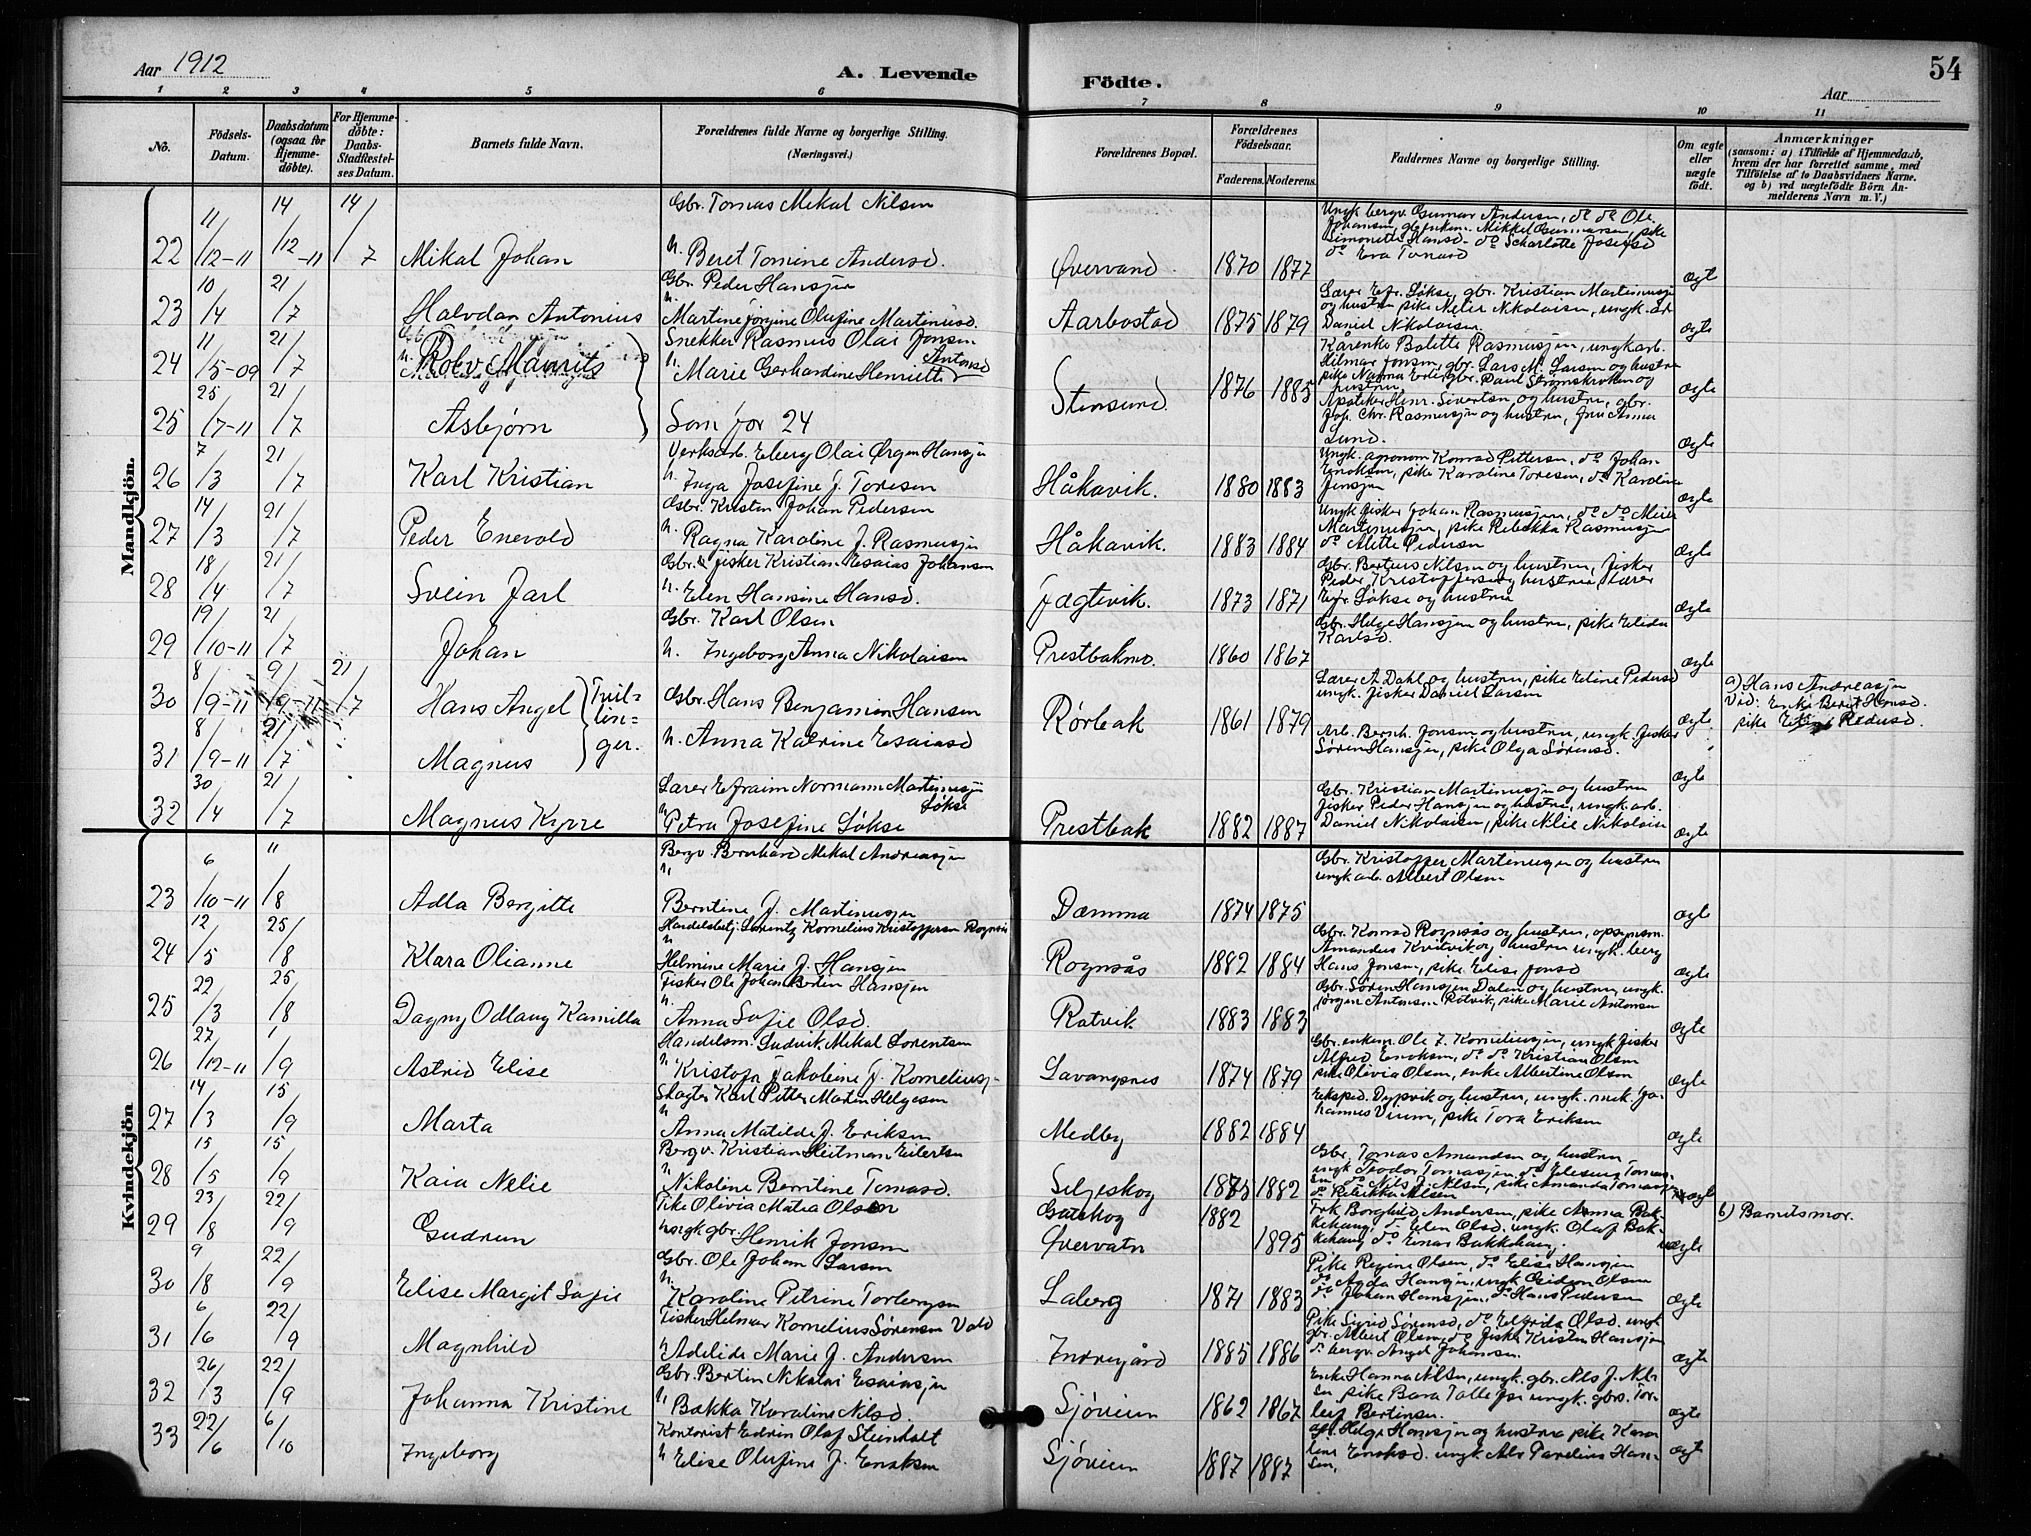 Aar 1912
A. Levende
Födte.
54
Aar
1 2 3 4 5 6 7 8 9 10 11
No.
Födsels-
Datum.
Daabsdatum
(ogsaa for
Hjemme-
döbte).
For Hjemme-
döbte:
Daabs-
Stadfæstel-
ses Datum.
Barnets fulde Navn.
Forældrenes fulde Navne og borgerlige Stilling.
(Næringsvei.)
Forældrenes Bopæl.
Forældrenes
Födselsaar.
Faderens. Moderens.
Faddernes Navne og borgerlige Stilling.
Om ægte
eller
uægte
födt.
Anmærkninger
(saasom: a) i Tilfælde af Hjemmedaab,
hvem der har forrettet samme, med
Tilföielse af to Daabsvidners Navne.
og b) ved uægtefödte Börn An-
melderens Navn m. V.)
Mandkjön.
22 11/12-11 14/12-11 14/7 Mikal Johan
Gbr. Tomas Mekal Nilsen
h. Beret Tomine Andersd.
Øvervand. 1870 1877
Ungk bergv Gunnar Andersen, do do Ole
Johansen, gbr enkem. Mikkel Gunnarsen, pike
Simonette Hansd. do Scharlotte Josefsd
do Eva Tomasd
ægte
23 10/4 21/7 Halvdan Antonius
Gbr. Peder Hansen
h. Martine Jørgine Olufine Martinusd.
Aarbostad 1875 1879
Lærer Efr. Løkse, gbr. Kristian Martinussen
og hustru pike Nelie Nikolaisen, ungk. arb
Daniel Nikolaisen.
ægte
24 11/5-09 21/7 Rolv Maurits
Snekker Rasmus Olai Jonsen
h. Marie Gerhardine Henriette Antonsd
Stensund. 1876 1885
Karenke Bolette Rasmussen, ungk arb.
Hilmar Jonsen, gbr. Lars M. Larsen og hustru
ægte
25 25/7-11 21/7 Asbjørn
Som for 24
Apoteker Henr. Sivertsen og hustru, gbr.
Joh. Chr. Rasmussen og hustru, fru Anna
Lund.
ægte
26 7/3 21/7 Karl Kristian
Verksarb. Eberg Olai Ørgen Hansen
h. Inga Josefine f. Toresen
Håkavik. 1880 1883
Ungk. agronom Konrad Pettersen, do Johan
Enoksen, pike Karoline Toresen, do Karoline
Jensen
ægte
27 14/3 21/7 Peder Enevold
Gbr. Kristen Johan Pedersen
h. Ragna Karoline f. Rasmussen
Håkavik. 1883 1884
Ungk fisker Johan Rasmussen, do do Meier
Martinussen, pike Rebekka Rasmussen
do Alette Pedersen
ægte
28 18/4 21/7 Svein Jarl
Gbr. & fisker Kristian Esaias Johansen
h. Elen Hansine Hansd.
Jægtvik. 1873 1871
Gbr. Berteus Nilsen og hustru, fisker
Peder Kristoffersen og hustru, lærer
Efr. Løkse og hustru
ægte
29 19/10-11 21/7 Johan
Gbr. Karl Olsen
h. Ingeborg Anna Nikolaisen
Prestbakmo. 1860 1867
Gbr. Helge Hansen og hustru, pike Elida
Karlsd.
ægte
30 8/9-11 9/9-11 21/7 Hans Angel
Tvil-
lin-
ger.
Gbr. Hans Benjamin Hansen
h. Anna Katrine Esaiasd
Rørbak 1861 1879
Lærer A. Dahl og hustru, pike Eline Pedersd
ungk. fisker Daniel Larsen
ægte
a) Hans Andreassen
Vid: Enke Beret Hansd.
pike Eline Pedersd.
31 8/9-11 21/7 Magnus
Arb. Bernh. Jonsen og hustru, ungk. fisker
Søren Hansen, pike Olga Sørensd.
ægte
32 30/4 21/7 Magnus Kyrre
Lærer Efraim Normann Martinussen Løkse
h. Petra Josefine Løkse
Prestbak 1882 1887
Gbr. Kristian Martinussen og hustru
fisker Peder Hansen og hustru, ungk. arb.
Daniel Nikolaisen, pike Nelie Nikolaisen
ægte
Kvindekjön
23 6/10-11 11/8 Adla Bergitte
Bergv. Bernhard Mekal Andreassen
h. Berntine f. Martinussen
Dæmma 1874 1875
Gbr. Kristoffer Martinussen og hustru
ungk arb. Albert Olsen
ægte
24 12/5 25/8 Klara Olianne
Handelsbetj. Lorentz Kornelius Kristoffersen Rognsås
h. Helmine Marie f. Hansen
Rognsås 1882 1884
Gbr. Konrad Rognsås og hustru, opsynsm.
Amandus Kvitvik og hustru ungk. berg
Hans Jonsen, pike Elise Jonsd
ægte
25 22/3 25/8 Dagny Odlaug Kamilla
Fisker Ole Johan Bertin Hansen
h. Anna Sofie Olsd.
Ratvik 1883 1883
Gbr. Søren Hansen Dalen og hustru, ungk.
Jørgen Antonsen Rotvik, pike Marie Antonsen
ægte
26 27/12-11 1/9 Astrid Elise
Handelsm. Ludvik Mekal Lorentsen
h. Kristofa Jakobine f. Korneliuss.
Lavangsnes 1874 1879
Gbr. enkem. Ole Z. Korneliussen, ungk fisker
Alfred Enoksen, do do Kristian Olsen
pike Olivia Olsen, enke Albertine Olsen
ægte
27 14/3 15/9 Marta
Slagter Karl Petter Martin Helgesen
h. Anna Matilde f. Eriksen
Medby 1882 1884
Eksped. Dypvik og hustru, ungk. mek. Jo-
hannes Vium, pike Tora Eriksen
ægte
28 15/5 15/9 Kaia Nelie
Bergv. Kristian Heitman Eilertsen
h. Nikoline Berntine Tomasd.
Seljeskog 1875 1882
Gbr. Tomas Amundsen og hustru
ungk Teodor Tomassen, do Eleseus Tomas-
sen, do Nils J. Nilsen, pike Amanda Tomassen
do Rebekka Nilsen
ægte
29 23/8 22/9 Gudrun
Pike Olivia Matea Olsen
ungk gbr. Henrik Jonsen
Gateskog 1882
Øvervatn 1895
Frk Borghild Andersen, pike Anna Bak-
kehaug, do Elen Olsd. ungk. Olaf Bak-
kehaug do Einar Bakkehaug.
uægte
b) Barnets mor.
30 9/8 22/9 Elise Margit Sofie
Gbr. Ole Johan Larsen
h. Karoline Petrine Torbergsen
Laberg 1871 1883
Pike Regine Olsen, do Elise Hansen
do Agda Hansen, ungk Gideon Olsen
do Johan Hansen, do Hans Pedersen
ægte
31 6/6 22/9 Magnhild
Fisker Helmer Kornelius Sørensen Vold
h. Adelide Marie f. Andersen
Indregård 1885 1886
Pike Sigrid Sørensd, do Elfrida Olsd. ungk
gbr. Albert Olsen, do fisker Kristen Hansen
do bergv. Angel Johansen.
ægte
32 26/3 22/9 Johanna Kristine
Gbr. Bertin Nikolai Esaiassen
h. Bakka Karoline Nilsd.
Sjøveien 1862 1867
Enke Hanna Nilsen, ungk. gbr. Nils J. Nil-
sen pike Bara Tollefsen ungk. gbrs. Tor-
leif Bertinsen.
ægte
33 22/6 6/10 Ingeborg
Kontorist Edvin Olaf Steinholt
h. Elise Olufine f. Enoksen
Sjøveien 1887 1887
Gbr. Helge Hansen og hustru pike Karo-
line Enoksd. ungk. Alv Parelius Han-
sen.
ægte